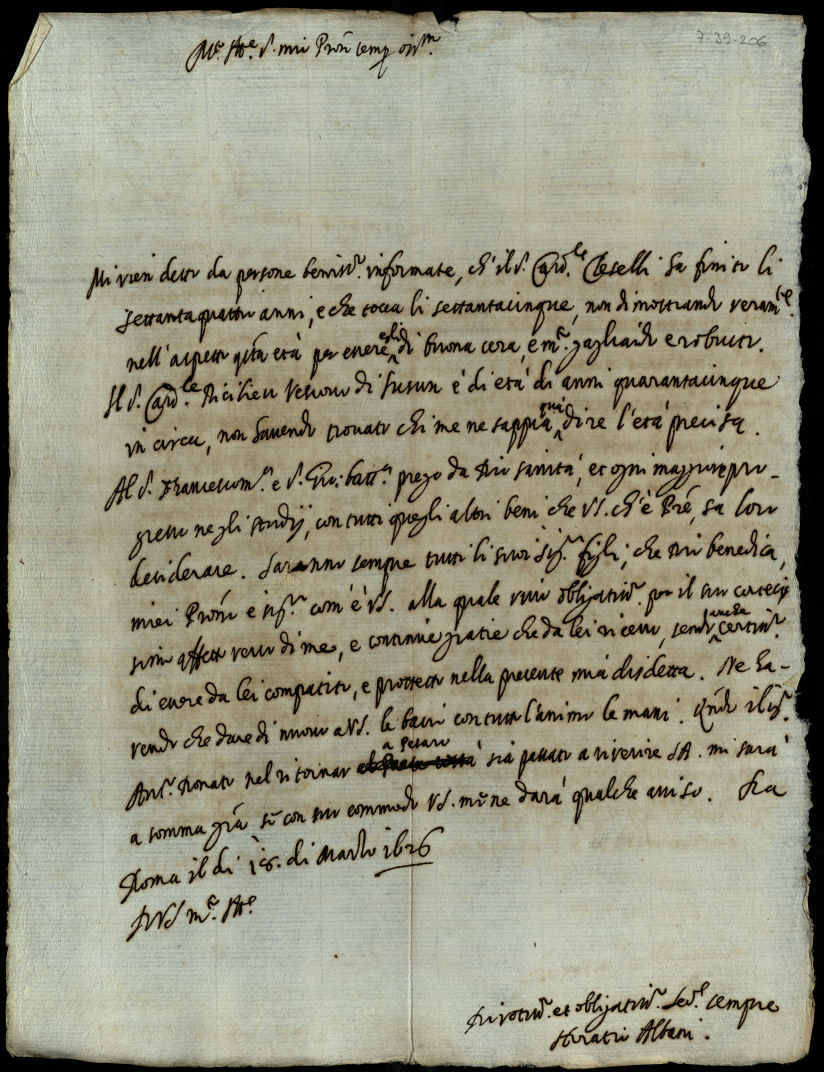 7-39-206
M.to Ill.re S.r mio P.rōn semp. oss.mo
Mi vien detto da persone beniss.o informate, ch'il S. Card.le Cleselli ha finito li
settantaquattro anni, e che tocca li settantacinque, non dimostrando veram.te
nell'aspetto q̄sta età per essere egli di buona cera, e m.o gagliardo e robusto.
Il S. Card.le Ricilieu Vescovo di Lusson è di età di anni quarantacinque
in circa, non havendo trovato chi me ne sappia quì dire l'età precisa.
Al S. Francescom.a e S. Gio: batt.a prego da Dio sanità, et ogni maggior pro-
gresso negli studij, con tutti quegli altri beni che VS. ch'è P̄re, sa loro
desiderare. Saranno sempre tutti li suoi Sig.ri figli, che Dio benedica,
miei P̄roni e sig.ri com'è VS. alla quale vivo obligatiss.o per il suo cortesis
simo affetto verso di me, e continue gratie che da lei ricevo, sendo anche certiss.o
di essere da lei compatito, e protetto nella presente mia disdetta. Ne ha-
vendo che dare di nuovo a VS. le bacio con tutto l'animo le mani. Q̄ndo il Sig.r
Ant.o Donato nel ritornar a Pesaro sia passato a riverire SA. mi sarà
a somma gr̄a se con suo commodo VS. me ne darà qualche aviso. Di
Roma il dì 18. di Marzo 1626
Di VS m.to Ill.re
Divotiss.o et obligatiss.o Ser.re sempre
Horatio Albani.